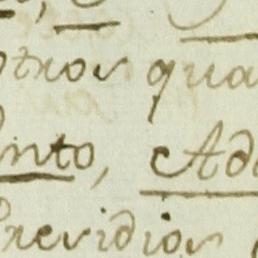 otros qua
nto, Ad
Presidios